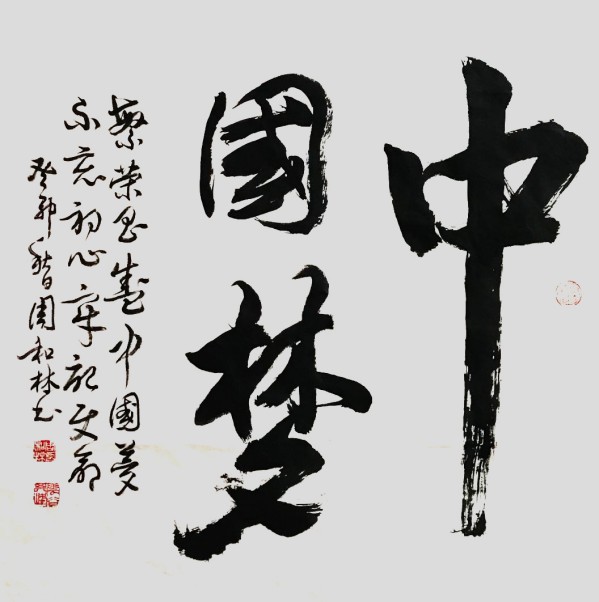 中
國梦
繁荣昌盛中國夢
不忘初心牢記使命
癸卯秋日周和林书